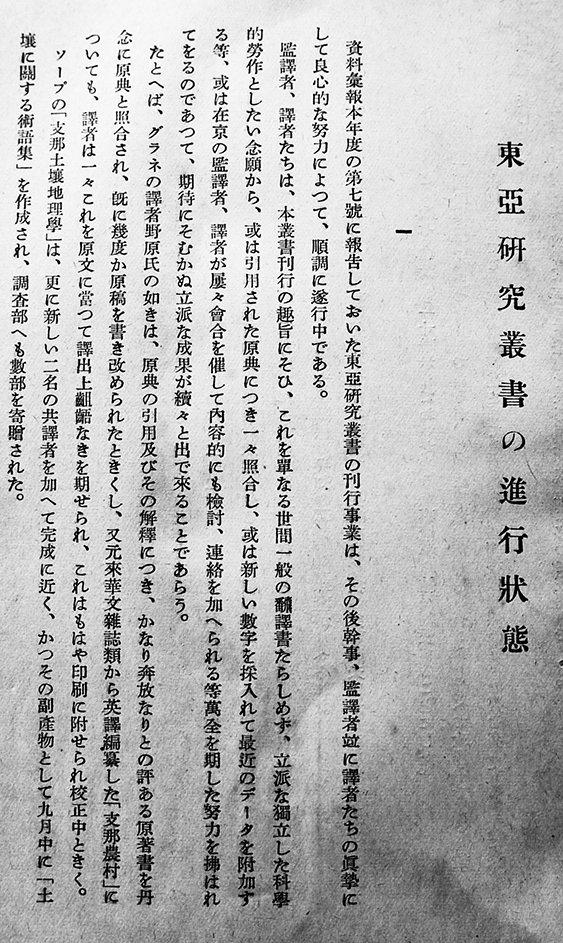 東亞硏究叢書の進行狀態
一
資料彙報本年度の第七號に報告しておいた東亞硏究叢書の刊行事業は、その後幹事、監譯者竝に譯者たちの眞摯に
して良心的な努力によつて、順調に遂行中である。
監譯者、譯者たちは、本叢書刊行の趣旨にそひ、これを單なる世間一般の飜譯書たらしめず、立派な獨立した科學
的勞作としたい念願から、或は引用された原典につき一々照合し、或は新しい數字を採入れて最近のデータを附加す
る等、或は在京の監譯者、譯者が屢々會合を催して內容的にも檢討、連絡を加へられる等萬全を期した努力を拂はれ
てをるのであつて、期待にそむかぬ立派な成果が續々と出で來ることであらう。
たとへば、グラネの譯者野原氏の如きは、原典の引用及びその解釋につき、かなり奔放なりとの評ある原著書を丹
念に原典と照合され、旣に幾度か原稿を書き改められたときくし、又元來華文雜誌類から英譯編纂した「支那農村」に
ついても、譯者は一々これを原文に當つて譯出上齟齬なきを期せられ、これはもはや印刷に附せられ校正中ときく。
ソープの「支那土壤地理學」は、更に新しい二名の共譯者を加へて完成に近く、かつその副產物として九月中に「土
壤に關する術語集」を作成され、調査部へも數部を寄贈された。